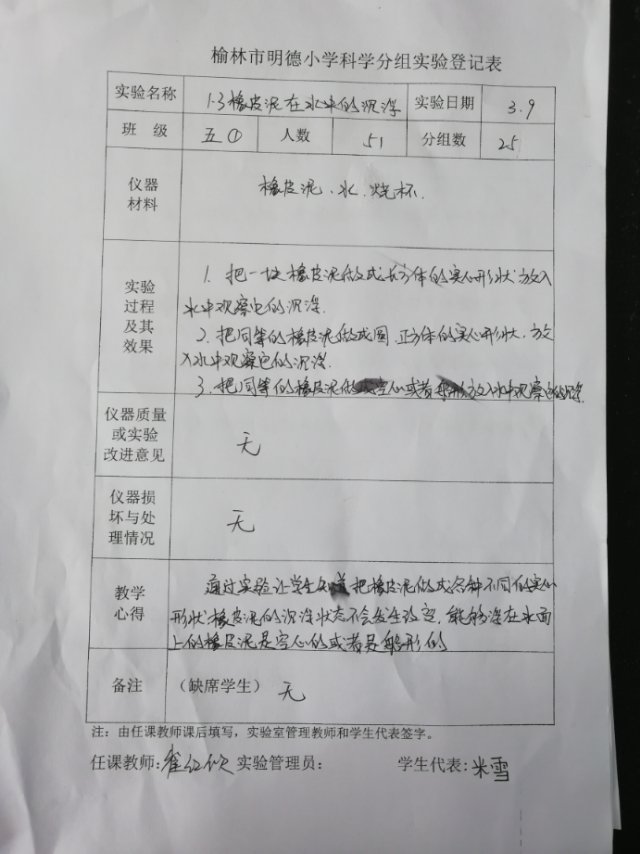 榆林市明德小学科学分组实验登记表
实验名称 1.3橡皮泥在水中的沉浮 实验日期 3.9
班 级 五① 人数 51 分组数 25
仪器材料 橡皮泥、水、烧杯.
实验过程及其效果
1. 把一块橡皮泥做成长方体的实心形状放入
水中观察它的沉浮.
2. 把同等的橡皮泥做成圆、正方体的实心形状,放
入水中观察它的沉浮.
3. 把同等的橡皮泥做成空心或者船形放入水中观察它的沉浮
仪器质量或实验改进意见 无
仪器损坏与处理情况 无
教学心得
通过实验让学生知道把橡皮泥做成各种不同的实心
形状橡皮泥的沉浮状态不会发生改变,能够浮在水面
上的橡皮泥是空心的或者是船形的
备注 (缺席学生) 无
注:由任课教师课后填写,实验室管理教师和学生代表签字。
任课教师: 崔红欣 实验管理员: 学生代表: 米雪